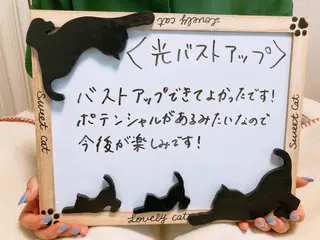 Lovely cat
<光バストアップ>
バストアップできてよかったです!
ポテンシャルがあるみたいなので
今後が楽しみです!
Sweet Cat
Sweet Cat
Lovely cat